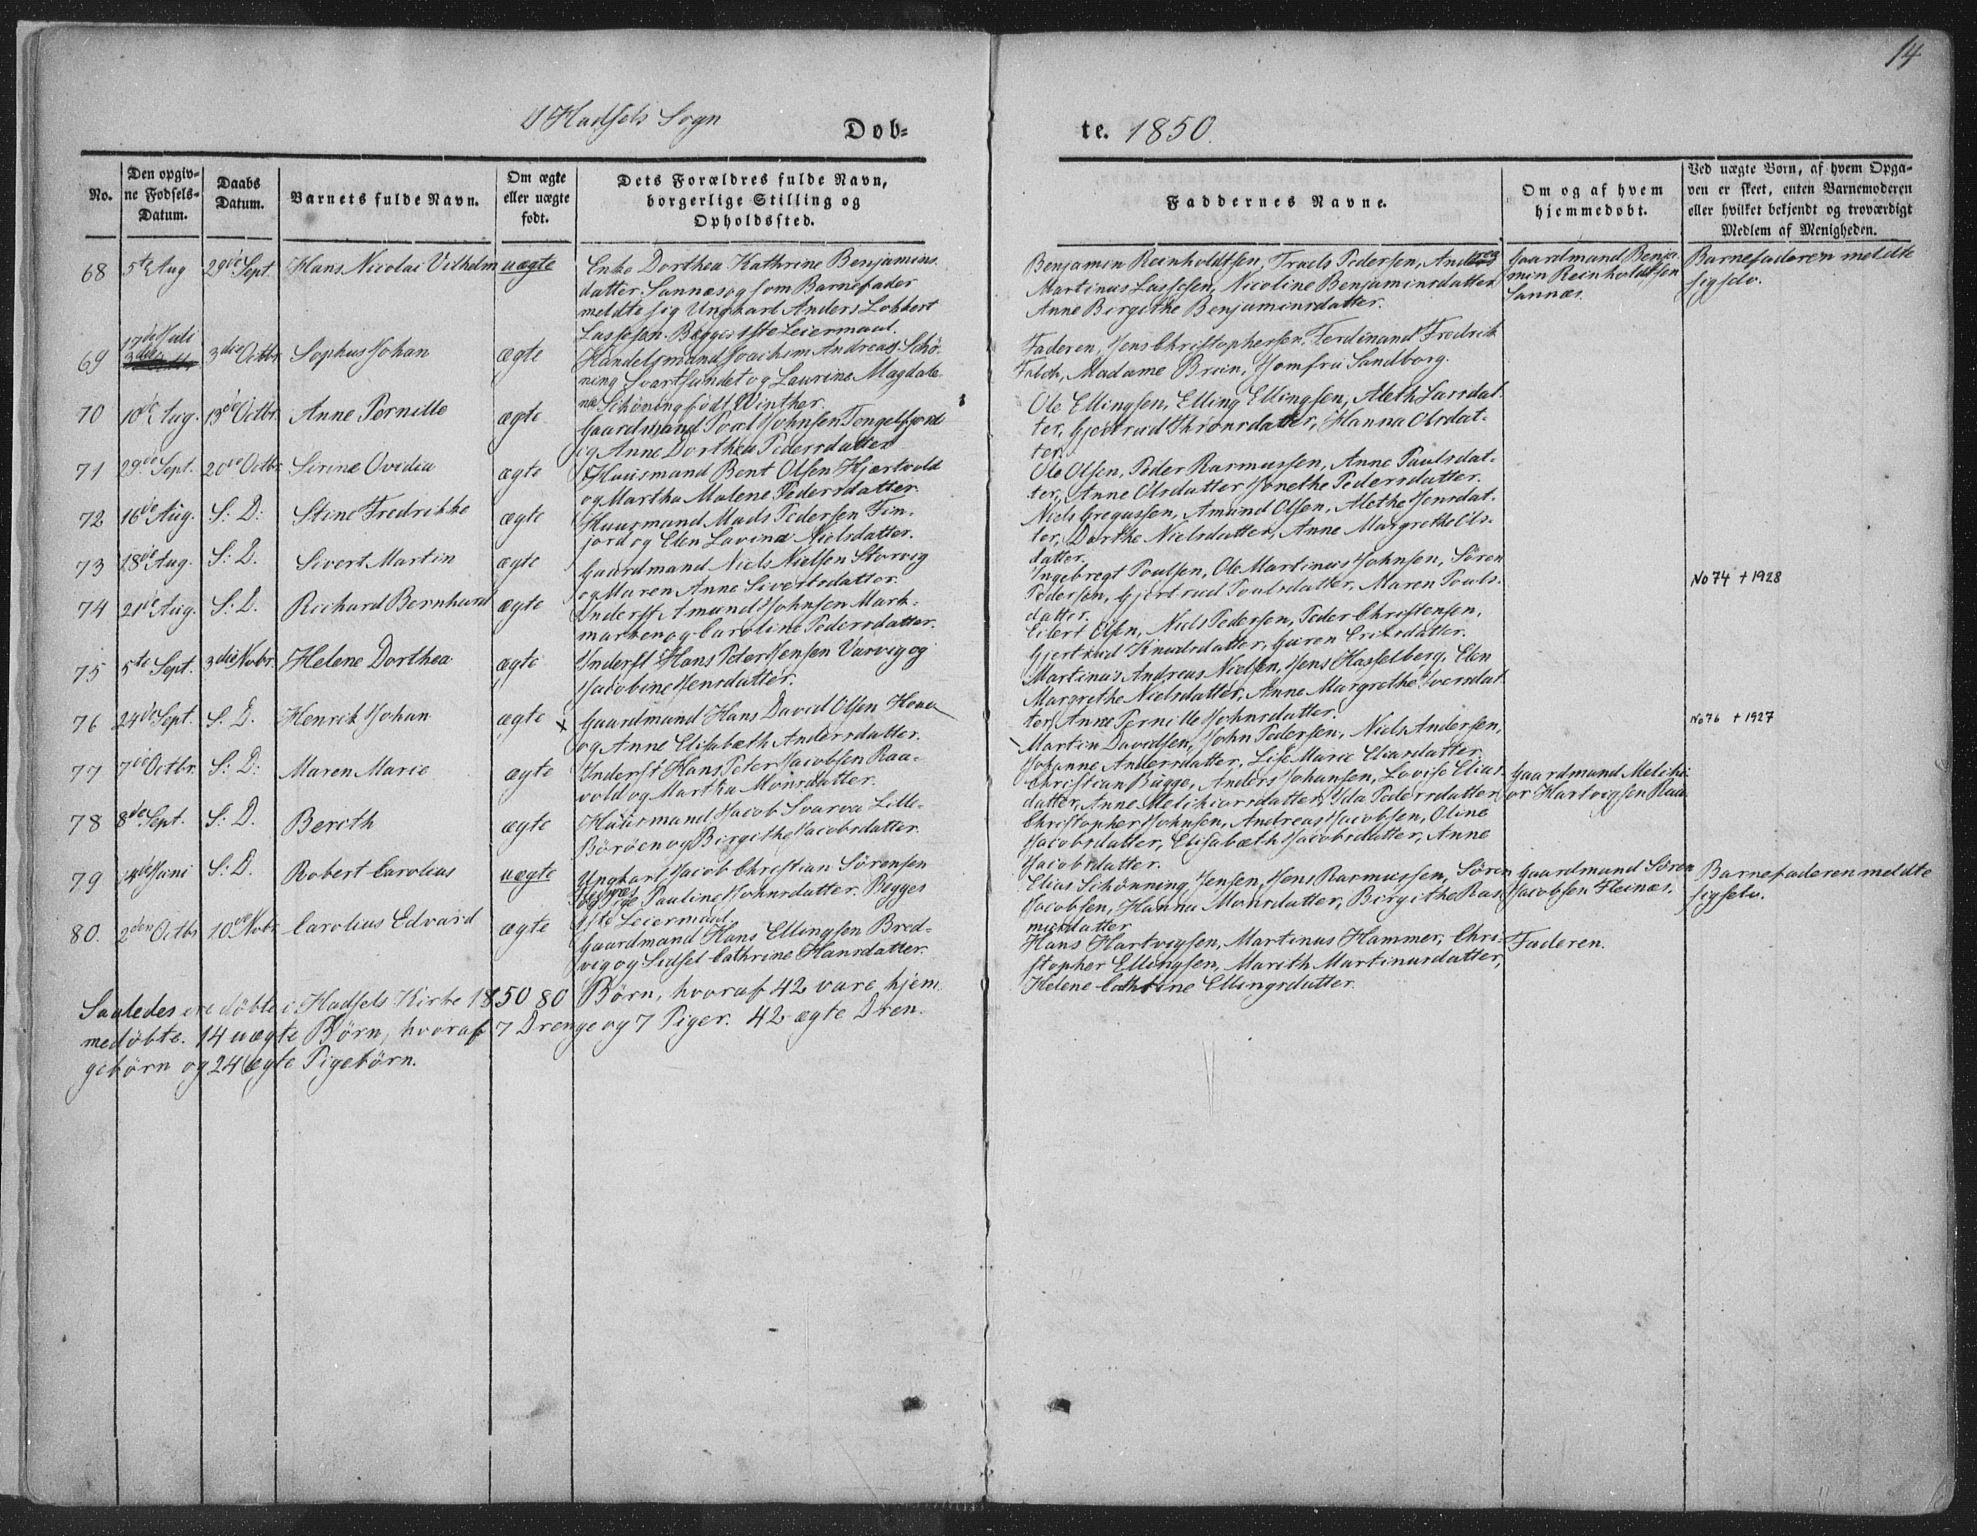 14
I Hadsels Sogn
Døb=
te. 1850.
No.
Den opgiv-
ne Fødsels-
Datum.
Daabs
Datum.
Barnets fulde Navn.
Om ægte
eller uægte
født.
Dets Forældres fulde Navn,
borgerlige Stilling og
Opholdssted.
Faddernes Navne.
Om og af hvem
hjemmedøbt.
Ved uægte Børn, af hvem Opga-
ven er skeet, enten Barnemoderen
eller hvilket bekjendt og troværdigt
Medlem af Menigheden.
68 5te Aug 29de Sept. Hans Nicolai Vilhelm uægte
Enke Dorthea Kathrine Benjamins
datter Sannæs og som Barnefader
meldte sig Ungkarl Anders Lobbert
Lassesen. Begges 1ste Leiermaal.
Benjamin Reinholdtsen, Troels Pedersen, Anders
Martinus Lassesen, Nicoline Benjaminsdatter
Anne Birgithe Benjaminsdatter.
Gaardmand Benja-
min Reinholdtsen
Sannæs.
Barnefaderen meldte
sig selv.
69 17de Juli 3die Octbr. Sophus Johan ægte
Handelsmand Joachim Andreas Schø-
ning Svartsundet og Laurine Magdale-
ne Schøning født Winther.
Faderen, Jens Christophersen, Ferdinand Fredrik
Falch, Madame Brun, Jomfru Sandborg.
70 10de Aug. 13de Octbr. Anne Pernille ægte
Gaardmand Poul Johnsen Tengelfjord
og Anne Dorthea Pedersdatter
Ole Ellingsen, Elling Ellingsen, Aleth Larsdat-
ter, Gjertrud Thronsdatter, Hanna Olsdat-
ter.
71 29de Sept. 20de Octbr. Sirine Ovidia ægte
Huusmand Bent Olsen Hjertvold
og Martha Malene Pedersdatter.
Ole Olsen, Peder Rasmussen, Anne Paulsdat-
ter, Anne Olsdatter Jonethe Pedersdatter.
72 16de Aug. S: D: Stine Fredrikke ægte
Huusmand Mads Pedersen Fin-
jord og Elen Lavina Nielsdatter.
Niels Gregussen, Amund Olsen, Alethe Jensdat-
ter, Dorthe Nielsdatter, Anne Margrethe Ols-
datter.
73 18de Aug. S: D. Sivert Martin ægte
Gaardmand Niels Nielsen Storvig
og Maren Anne Sivertsdatter.
Ingebregt Poulsen, Ole Martinus Johnsen, Søren
Pedersen, Gjertrud Poulsdatter, Maren Pouls-
datter.
74 21de Aug. S: D. Richard Bernhard ægte
Inderst Amund Johnsen Mark-
marken og Caroline Pedersdatter.
Eilert Olsen, Niels Pedersen, Peder Christensen,
Gjertrud Knudsdatter, Guren Eriksdatter.
No 74 † 1928
75 5te Sept. 3die Nobr. Helene Dorthea ægte
Inderst Hans Peter Jensen Varvig og
Jacobine Jensdatter.
Martinus Andreas Nielsen, Jens Hasselberg, Elen
Margrethe Nielsdatter, Anne Margrethe Iversdat-
ter, Anne Pernille Johnsdatter.
76 24de Sept. S. D. Henrik Johan ægte
Gaardmand Hans David Olsen Hoven
og Anne Elisabeth Andersdatter.
Martin Davidsen, John Pedersen, Niels Andersen,
Johanne Andersdatter, Lise Marie Eliasdatter.
No 76 † 1927
77 7de Octbr. S: D: Maren Marie ægte
Inderst Hans Peter Jacobsen Raa-
vold og Martha Monsdatter.
Christian Bugge, Anders Johansen, Lovise Elias-
datter, Anne Melchiorsdatter, Ida Pedersdatter
Gaardmand Melchi-
or Hartvigsen Raa-
78 8de Sept. S: D. Berith ægte
Huusmand Jacob Svarva Lille-
Børøen og Birgithe Jacobsdatter.
Christopher Johnsen, Andreas Jacobsen, Oline
Jacobsdatter, Elisabeth Jacobsdatter, Anne
Jacobsdatter.
79 4de Juni S: D. Robert Carolius uægte
Ungkarl Jacob Christian Sørensen
Fleinæs
og Pige Pauline Johnsdatter. Begges
1ste Leiermaal
Elias Schønning Jensen, Jens Rasmussen, Søren
Jacobsen, Hanna Monsdatter, Birgithe Ras-
musdatter
Gaardmand Søren
Jacobsen Fleinæs.
Barnefaderen meldte
sig selv.
80. 2den Octbr 10de Nobr. Carolius Edvard ægte
Gaardmand Hans Ellingsen Bred-
vig og Sidsel Cathrine Hansdatter.
Hans Hartvigsen, Martinus Hammer, Chri-
stopher Ellingsen, Marith Martinusdatter,
Helene Cathrine Ellingsdatter.
Faderen.
Saaledes ere døbte i Hadsels Kirke 1850 80 Børn, hvoraf 42 vare hjem-
medøbte. 14 uægte Børn, hvoraf 7 Drenge og 7 Piger. 42 ægte Dren-
gebørn og 24 ægte Pigebørn.